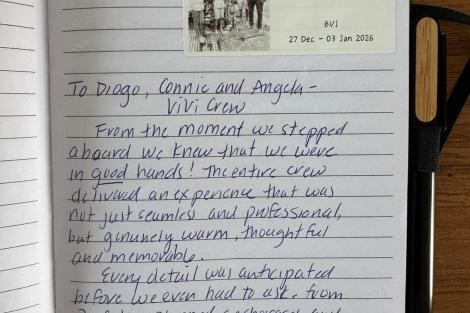 BVI
27 Dec - 03 Jan 2026
To Diogo, Connie and Angela -
ViVi Crew
From the moment we stepped
aboard we knew that we were
in good hands! The entire crew
delivered an experience that was
not just seamless and professional,
but genuinely warm, thoughtful
and memorable.
Every detail was anticipated
before we even had to ask. From
and